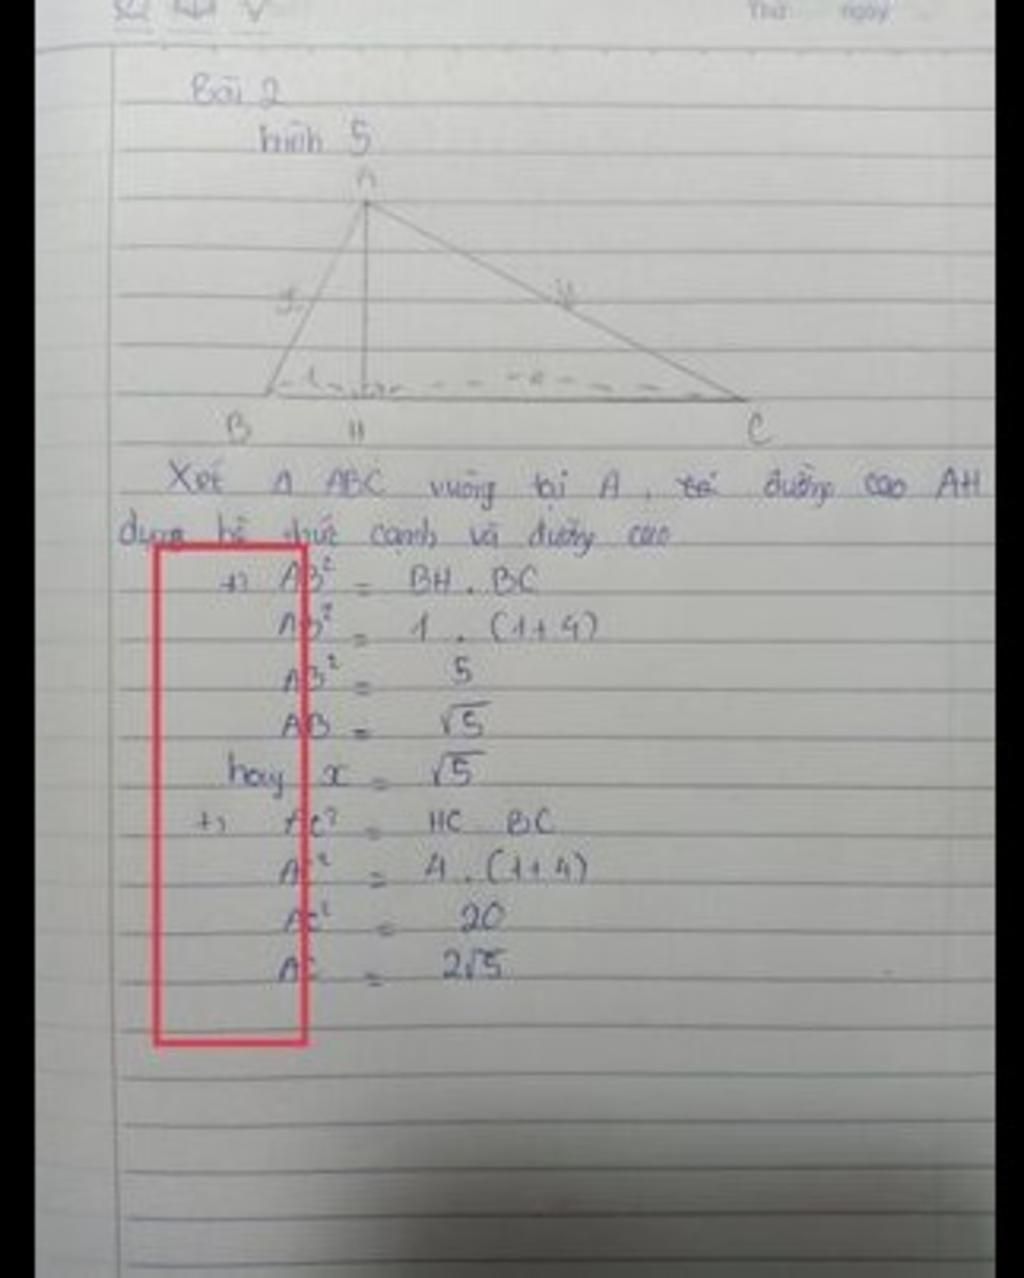 Thứ ngày
Bài 2
hình 5
A
1
B H C
Xét Δ ABC vuông tại A, đường cao AH
dụng hệ thức cạnh và đường cao
+) AB² = BH . BC
AB² = 1 . (1+4)
AB² = 5
AB = √5
hay x = √5
+) AC² = HC BC
AC² = 4 . (1+4)
AC² = 20
AC = 2√5